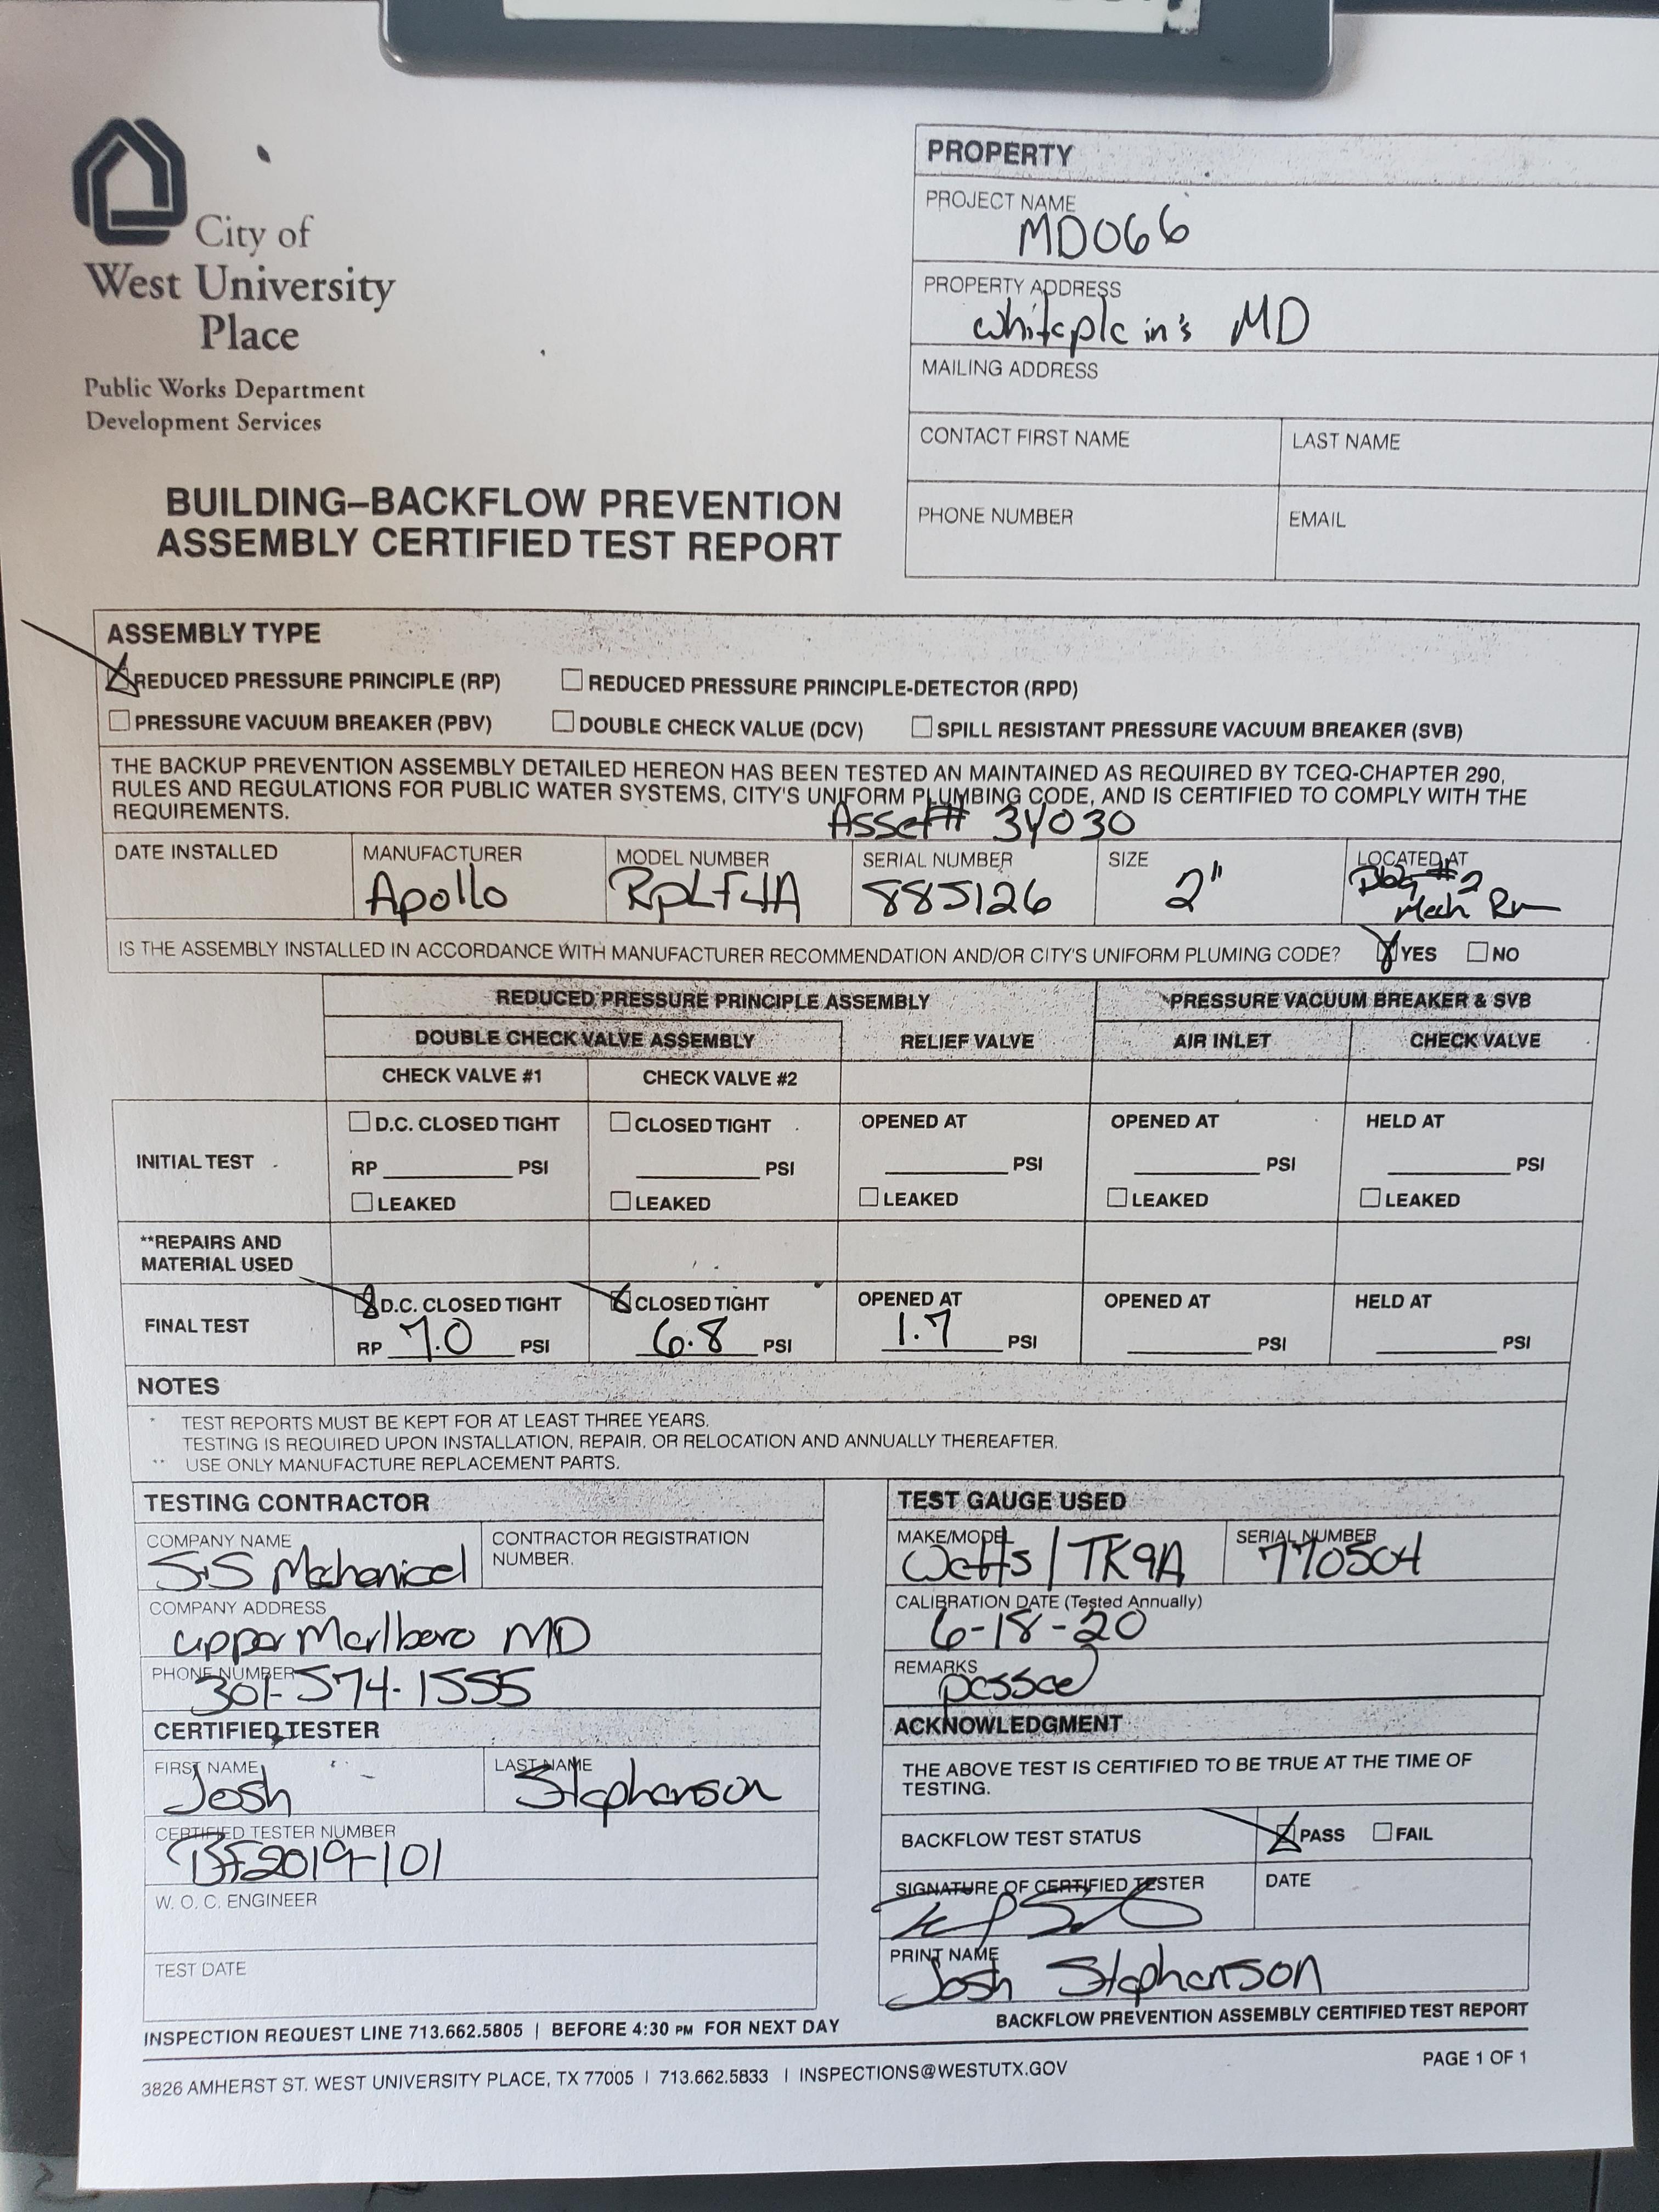 City of
West University
Place
Public Works Department
Development Services
BUILDING–BACKFLOW PREVENTION
ASSEMBLY CERTIFIED TEST REPORT
PROPERTY
PROJECT NAME
MD066
PROPERTY ADDRESS
whiteplain's MD
MAILING ADDRESS
CONTACT FIRST NAME
LAST NAME
PHONE NUMBER
EMAIL
ASSEMBLY TYPE
REDUCED PRESSURE PRINCIPLE (RP)
REDUCED PRESSURE PRINCIPLE-DETECTOR (RPD)
PRESSURE VACUUM BREAKER (PBV)
DOUBLE CHECK VALUE (DCV)
SPILL RESISTANT PRESSURE VACUUM BREAKER (SVB)
THE BACKUP PREVENTION ASSEMBLY DETAILED HEREON HAS BEEN TESTED AN MAINTAINED AS REQUIRED BY TCEQ-CHAPTER 290,
RULES AND REGULATIONS FOR PUBLIC WATER SYSTEMS, CITY'S UNIFORM PLUMBING CODE, AND IS CERTIFIED TO COMPLY WITH THE
REQUIREMENTS.
Asset# 34030
DATE INSTALLED
MANUFACTURER
Apollo
MODEL NUMBER
RpLF4A
SERIAL NUMBER
885126
SIZE
2"
LOCATED AT
#2
Mech Rm
IS THE ASSEMBLY INSTALLED IN ACCORDANCE WITH MANUFACTURER RECOMMENDATION AND/OR CITY'S UNIFORM PLUMING CODE? YES NO
REDUCED PRESSURE PRINCIPLE ASSEMBLY
PRESSURE VACUUM BREAKER & SVB
DOUBLE CHECK VALVE ASSEMBLY
RELIEF VALVE
AIR INLET
CHECK VALVE
CHECK VALVE #1
CHECK VALVE #2
INITIAL TEST
D.C. CLOSED TIGHT
RP PSI
LEAKED
CLOSED TIGHT
PSI
LEAKED
OPENED AT
PSI
LEAKED
OPENED AT
PSI
LEAKED
HELD AT
PSI
LEAKED
**REPAIRS AND
MATERIAL USED
FINAL TEST
D.C. CLOSED TIGHT
RP 7.0 PSI
CLOSED TIGHT
6.8 PSI
OPENED AT
1.7 PSI
OPENED AT
PSI
HELD AT
PSI
NOTES
* TEST REPORTS MUST BE KEPT FOR AT LEAST THREE YEARS.
TESTING IS REQUIRED UPON INSTALLATION, REPAIR, OR RELOCATION AND ANNUALLY THEREAFTER.
** USE ONLY MANUFACTURE REPLACEMENT PARTS.
TESTING CONTRACTOR
COMPANY NAME
S+S Mechanical
CONTRACTOR REGISTRATION
NUMBER.
COMPANY ADDRESS
upper Marlboro MD
PHONE NUMBER
301-574-1555
CERTIFIED TESTER
FIRST NAME
Josh
LAST NAME
Stephenson
CERTIFIED TESTER NUMBER
BF2019-101
W. O. C. ENGINEER
TEST DATE
TEST GAUGE USED
MAKE/MODEL
Watts / TK9A
SERIAL NUMBER
770504
CALIBRATION DATE (Tested Annually)
6-18-20
REMARKS
passed
ACKNOWLEDGMENT
THE ABOVE TEST IS CERTIFIED TO BE TRUE AT THE TIME OF
TESTING.
BACKFLOW TEST STATUS
PASS FAIL
SIGNATURE OF CERTIFIED TESTER
DATE
PRINT NAME
Josh Stephenson
INSPECTION REQUEST LINE 713.662.5805 | BEFORE 4:30 PM FOR NEXT DAY
BACKFLOW PREVENTION ASSEMBLY CERTIFIED TEST REPORT
3826 AMHERST ST. WEST UNIVERSITY PLACE, TX 77005 | 713.662.5833 | INSPECTIONS@WESTUTX.GOV
PAGE 1 OF 1